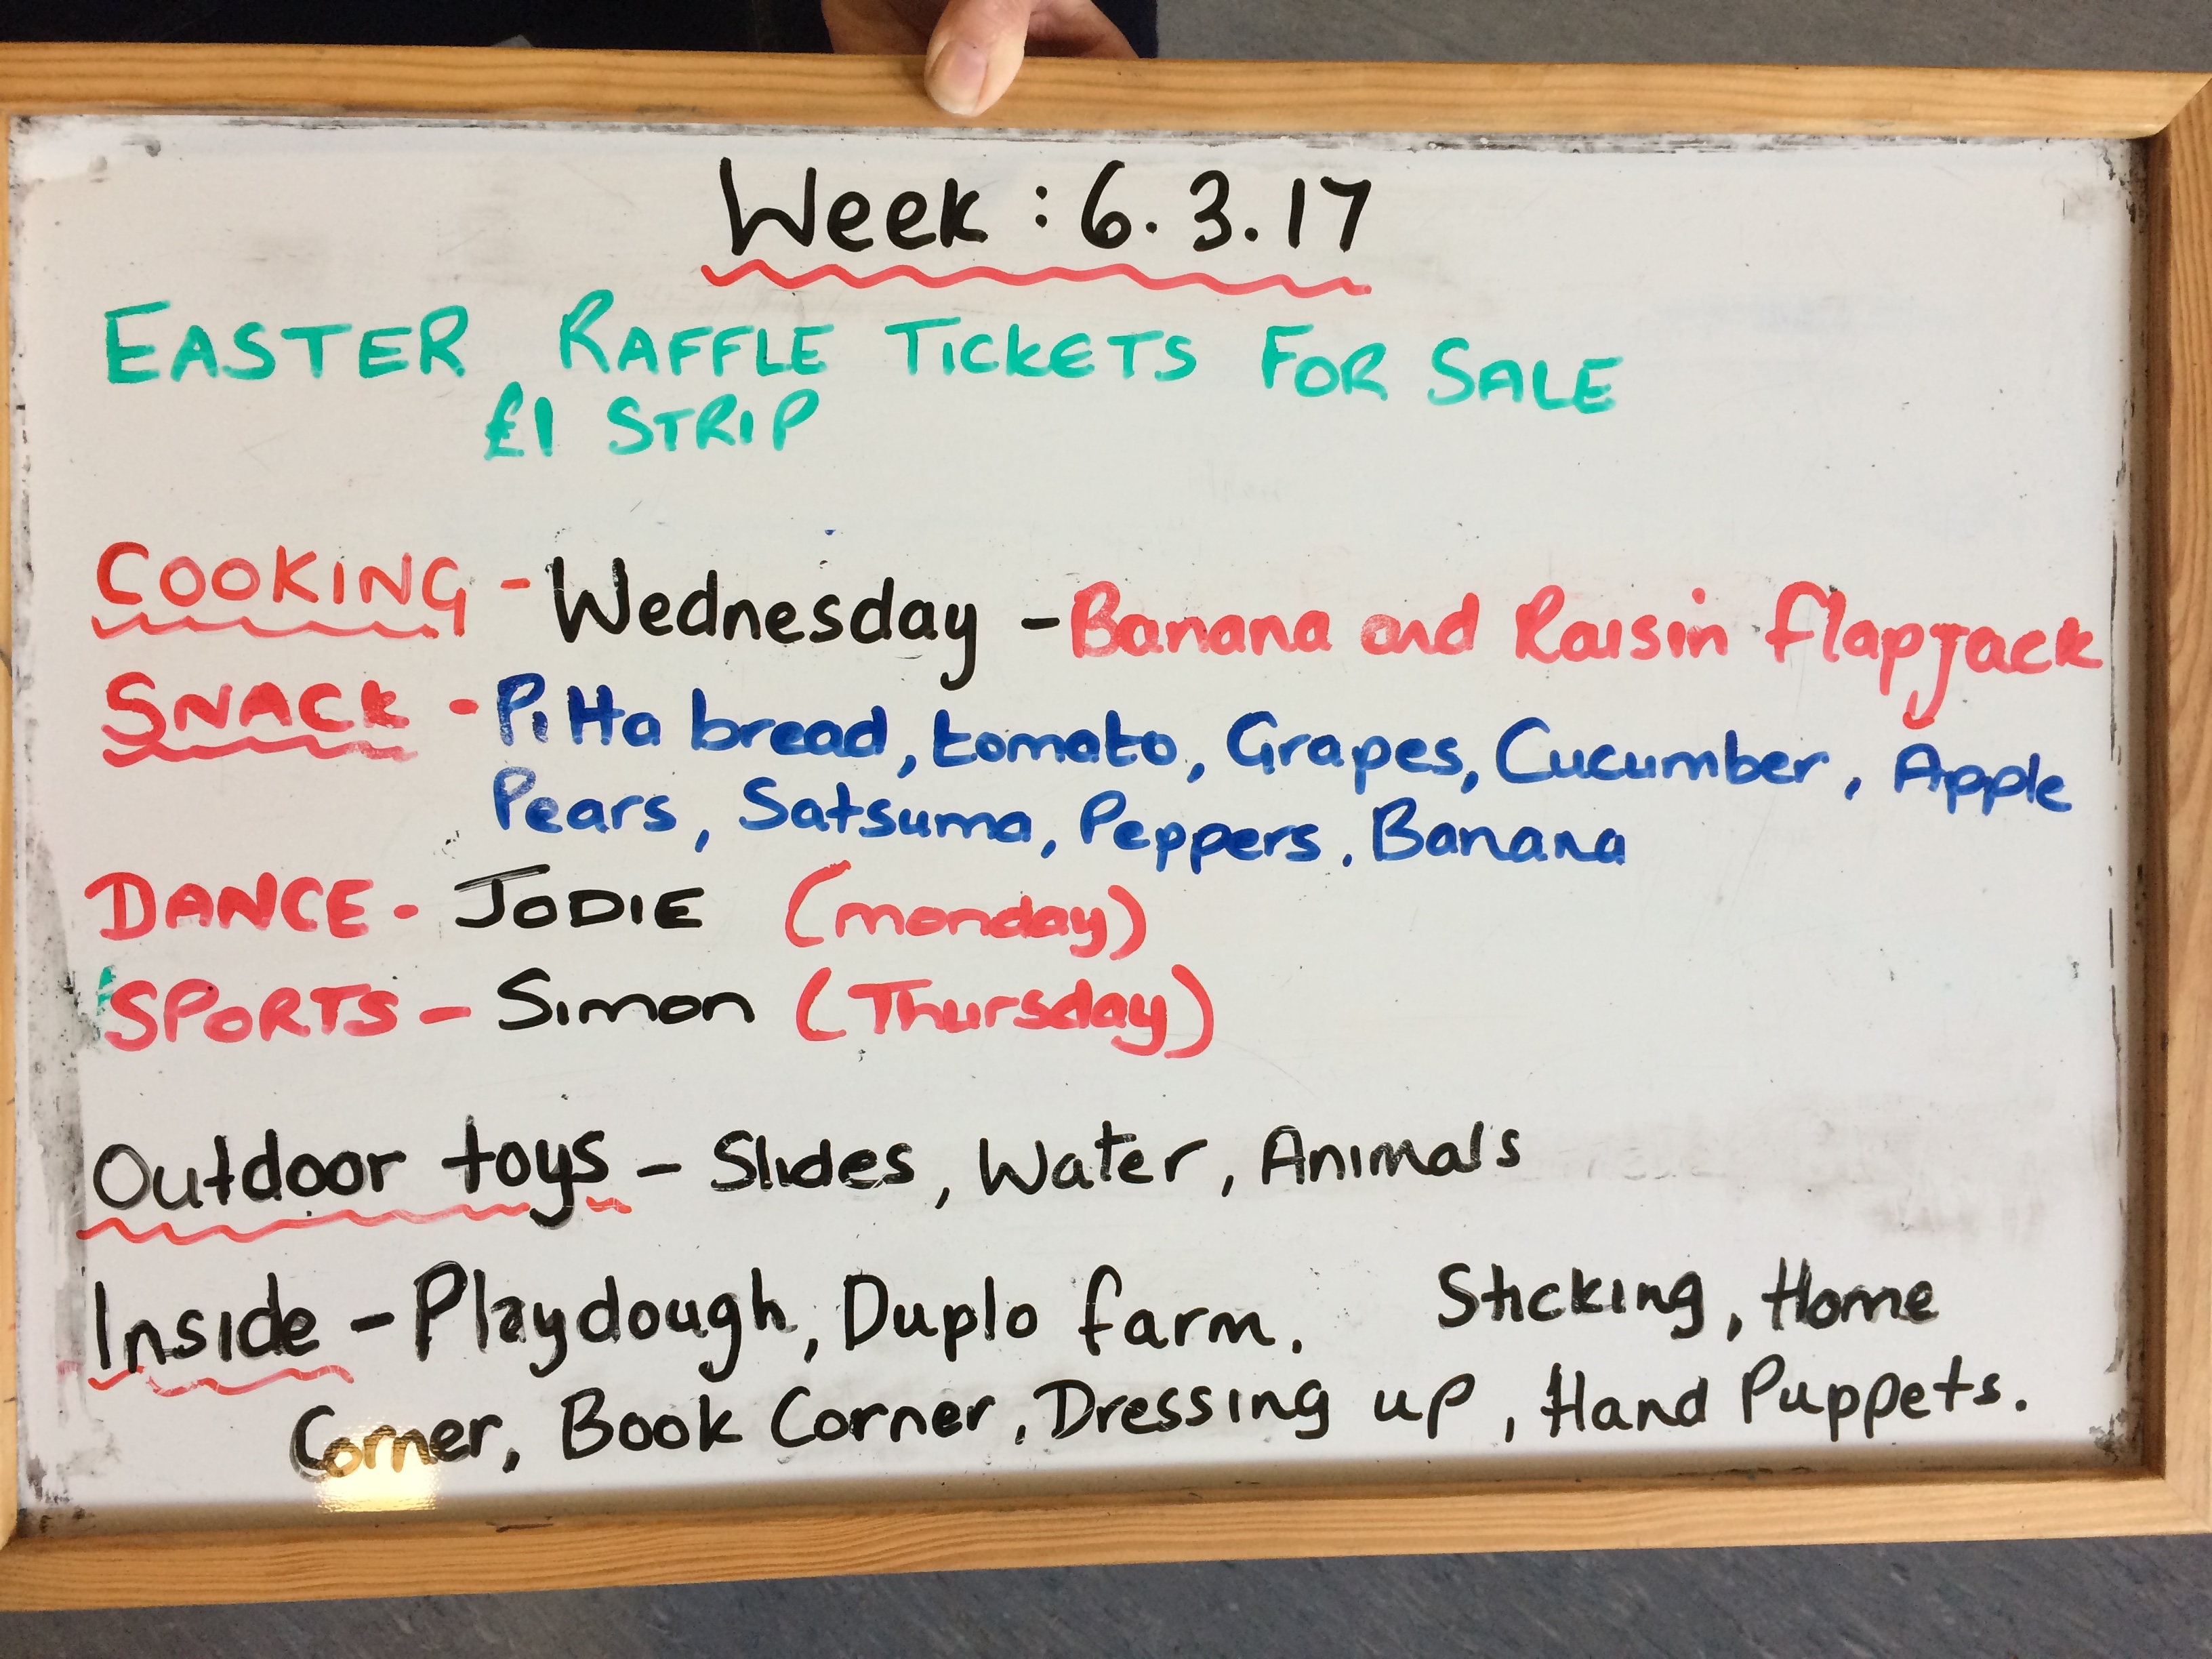 Week : 6.3.17
EASTER RAFFLE TICKETS FOR SALE
£1 STRIP
COOKING - Wednesday - Banana and Raisin flapjack
SNACK - Pitta bread, tomato, Grapes, Cucumber, Apple
Pears, Satsuma, Peppers, Banana
DANCE - JODIE (monday)
SPORTS - Simon (Thursday)
Outdoor toys - Slides, Water, Animals
Inside - Playdough, Duplo farm, Sticking, Home
Corner, Book Corner, Dressing up, Hand Puppets.